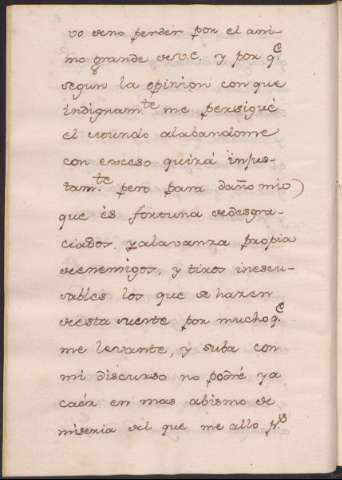 vo de no perder por el ani-
mo grande de V.E. y por q.e
segun la opinion con que
indignam.te me persigue
el mundo alabandome
con exceso quizá injus-
tam.te pero para daño mio)
que és fortuna de desgra-
ciados. y alavanza propia
de enemigos, y tiros inescu-
sables los que se hazen
de esta suerte por mucho q.e
me levante, y suba con
mi discurso no podré ya
caér en mas abismo de
miseria del que me allo p.s